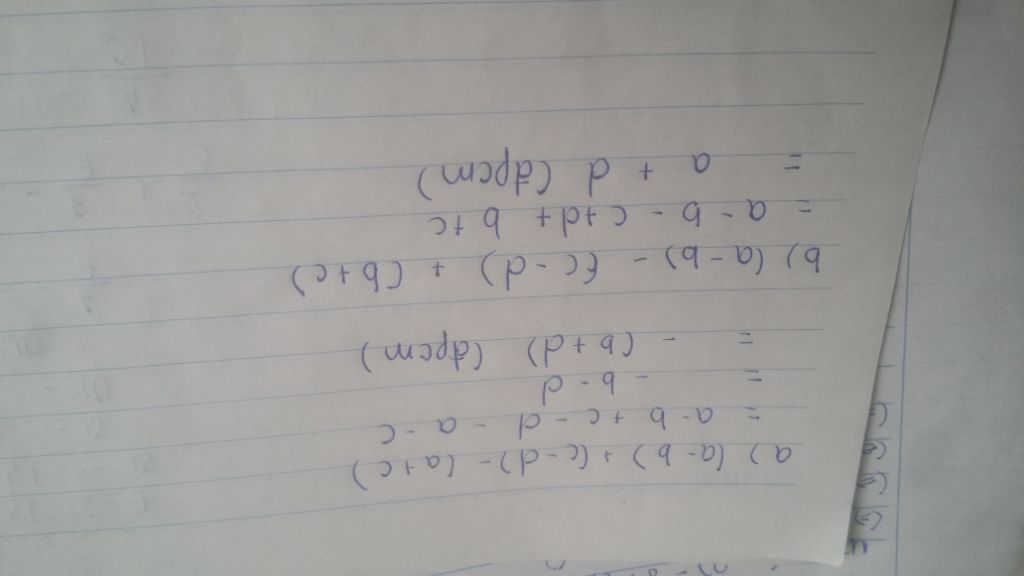 a) (a-b) + (c-d) - (a+c)
= a-b+c-d-a-c
= -b-d
= -(b+d) (đpcm)
b) (a-b) - (c-d) + (b+c)
= a-b-c+d+b+c
= a + d (đpcm)